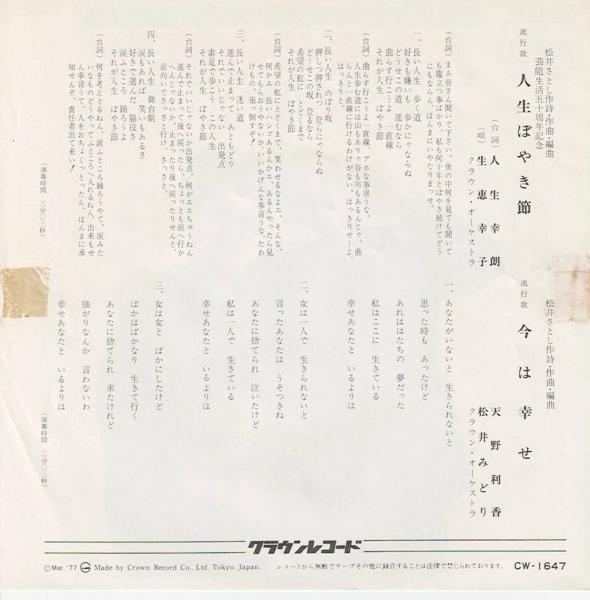 松井さとし作詩・作曲・編曲
芸能生活五十周年記念
流行歌 人生ぼやき節
(台詞) 人生幸朗
(唄) 生恵幸子
クラウン・オーケストラ
(台詞)
まぁ皆さん聞いて下さい。世の中何を見ても聞いて
も腹立つ事ばかり、私も何十年とぼやき続けてどう
にもならん、ほんまにいやなりまっせ。
一、長い人生 歩く道
好きも嫌いも あるかにゃならぬ
どうせこの道 進むなら
曲らず行こうよ 直線
それが人生 ぼやき節
(台詞)
曲らず行こうよ、直線、アホな事言うな。
人生歩む道には山もありゃ谷も川もあるんじゃ。曲
らんと直線に行けるわけがない。はっきりせーよ、
はっきり。
二、長い人生 のぼり坂
押しつ押されつ 登らにゃならぬ
どうせこの坂 登るなら
希望の虹に とどくまで
それが人生 ぼやき節
(台詞)
希望の虹にとどくまで、笑わせるなよエ、そんな、
何かエ長いはしごがあるんかエ、あるんやったら見
せてもらおうやないか、いいかげんな事言うな、たわ
けもの 張り倒すぞ
三、長い人生 迷い道
進んで止まって あともどり
それでいいじゃない 出発点
素足で歩こう この人生
それが人生 ぼやき節
(台詞)
それでいいじゃないか出発点、何がエエちゅうねん
進んで止まって後へ戻ったら、ちょっとも前へ行か
へんやないか、止ったり後へ戻ったりせんと
前向いてさっさと行け、さっさと。
四、長い人生 舞台劇
涙もあれば 笑いもあるさ
好きで選んだ 脇役さ
涙ふところ 踊ろうよ
それが人生 ぼやき節
(台詞)
何を考えとるねん、涙ふところ踊ろうやて、涙みた
いなものどうやってふところへ入れるねん、出来もせ
ん事言うて、人をおちょくっ、とったら、ほんまに承
知せんぞ、責任者出て来い!
(演奏時間 三分〇三秒)
松井さとし作詩・作曲・編曲
流行歌 今は幸せ
天野利香
松井みどり
クラウン・オーケストラ
一、あなたがいないと 生きられないと
思った時も あったけど
あれははたちの 夢だった
私はここに 生きている
幸せあなたと いるよりは
二、女は一人で 生きられないと
言ったあなたは うそつきね
あなたに捨てられ 泣いたけど
私は一人で 生きている
幸せあなたと いるよりは
三、女は女と ばかにしたけど
ばかはばかなり 生きて行く
あなたに捨てられ 来たけれど
強がりなんか 言わないわ
幸せあなたと いるよりは
(演奏時間 二分〇三秒)
クラウンレコード
©Mar. '77 Made by Crown Record Co., Ltd. Tokyo. Japan. レコードから無断でテープその他に録音することは法律で禁じられております。 CW-1647